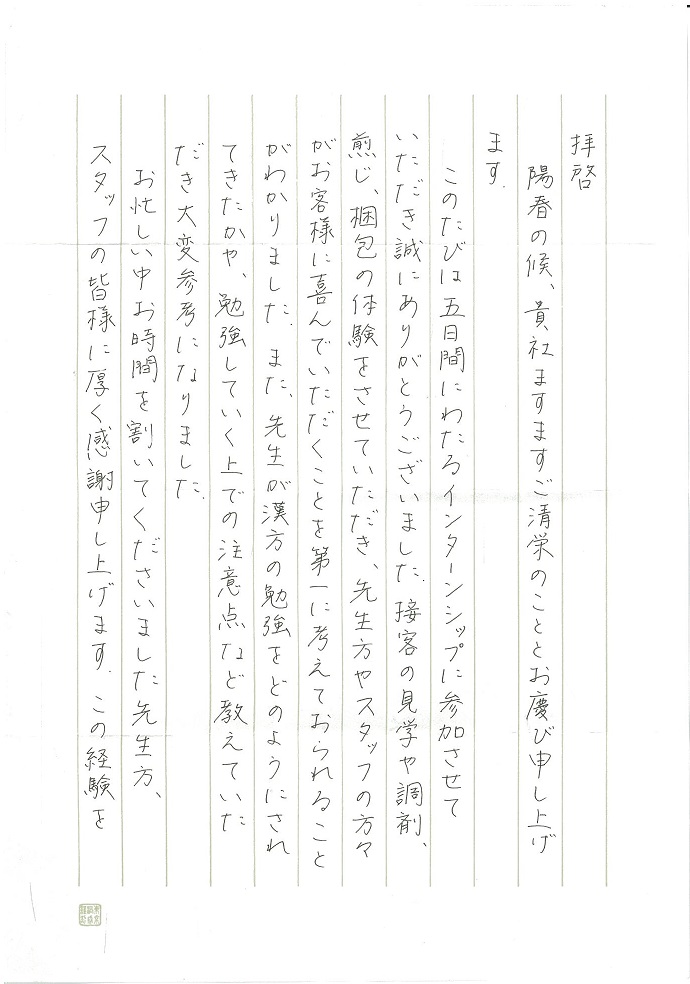 拝啓
陽春の候、貴社ますますご清栄のこととお慶び申し上げ
ます.
このたびは五日間にわたるインターンシップに参加させて
いただき誠にありがとうございました.接客の見学や調剤、
煎じ、梱包の体験をさせていただき、先生方やスタッフの方々
がお客様に喜んでいただくことを第一に考えておられること
がわかりました.また、先生が漢方の勉強をどのようにされ
てきたかや、勉強していく上での注意点など教えていた
だき大変参考になりました.
お忙しい中お時間を割いてくださいました先生方、
スタッフの皆様に厚く感謝申し上げます.この経験を